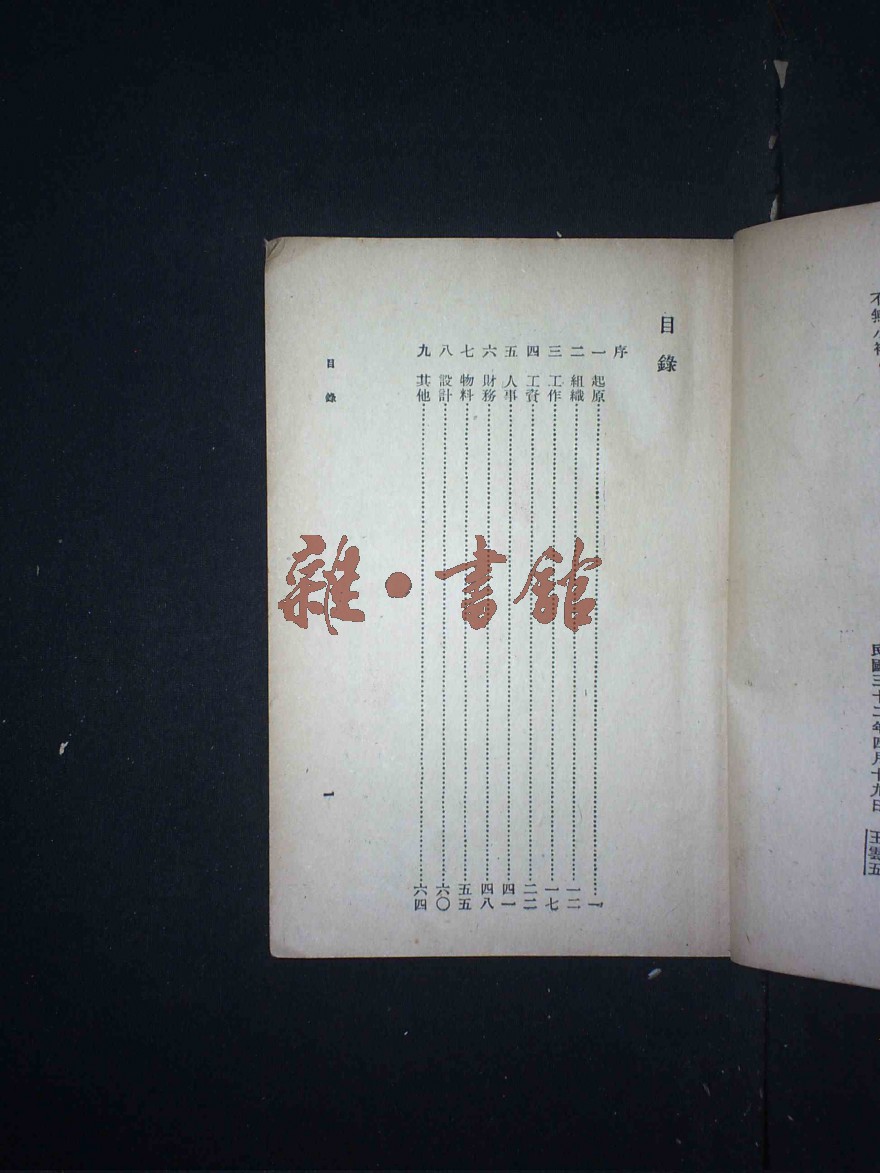 民國三十二年四月十九日 王雲五
目錄
序
一 起原……一
二 組織……一二
三 工作……一七
四 工資……二二
五 人事……四一
六 財務……四八
七 物料……五五
八 設計……六〇
九 其他……六四
目錄 一
雜·書館